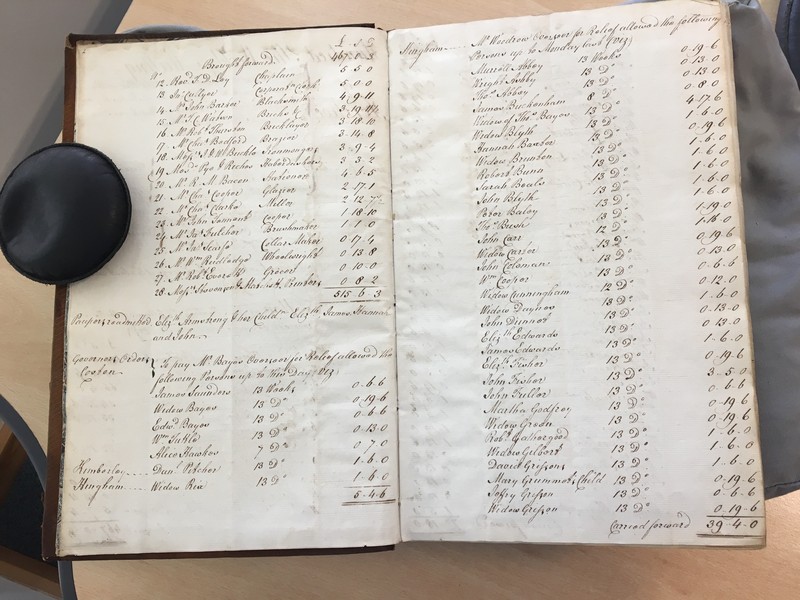 £ S D
Brought forward 467 1 3
No 12 Revd F. D. Loy Chaplain 5 5 0
13 Jno Cullyer Carpentrs Work 5 0 0
14 Mr John Barker Blacksmith 4 19 11
15 Mr T. C. Watson Bricks &c
16 Mr Robt Thurston Bricklayer 3 18 10
17 Mr Chas Bedford Brazier 3 14 8
18 Messrs Ironmongers 3 9 4
19 Messrs Pye & Roches Haberdashers 3 3 2
20 Mr R. M. Bacon Stationer 4 6 5
21 Mr Cooper Glazier 2 17 1
22 Mr Chas Clarke Miller 2 12 7½
23 Mr John Tennant Cooper 1 18 10
24 Mr Jas Fulcher Brushmaker 1 1 0
25 Mr Jas Scarfe Collar Maker 0 17 4
26 Mr Wm Rudledge Wheelwright 0 13 8
27 Mr Robt Grocer 0 10 0
28 Messrs 0 8 2
515 6 3
Paupers readmitted. Elizth Armstrong & her Childn Elizth James Hannah
and John
Governors Orders } To pay Mr Bayes Overseer for Relief allowed the
Coston following Persons up to this Day (Viz)
James Saunders 13 Weeks 0-6-6
Widow Bayes 13 Do 0-19-6
Edwd Bayes 13 Do 0-6-6
Wm Tuble 13 Do 0-13-0
Alice Hawkes 7 Do 0-7-0
Kimberley Danl Pitcher 13 Do 1-6-0
Hingham Widow Rix 13 Do 1-6-0
5-4-6
Hingham Mr Woodrow Overseer for Relief allowed the following
Persons up to Monday last (Viz)
Murrell Abbey 13 Weeks 0-19-6
Wright Ashby 13 Do 0-13-0
Thos Abbey 13 Do 0-13-0
James Buckenham 8 Do 0-8-0
Widow of Thos Bayes 13 Do 4-17-6
Widow Blyth 13 Do 1-6-0
Hannah Barber 13 Do 0-19-6
Widow Brunton 13 Do 1-6-0
Robert Bunn 13 Do 1-6-0
Sarah Beales 13 Do 1-6-0
John Blyth 13 Do 1-6-0
Peter Baley 13 Do
Thos Bush 13 Do 1-19-0
John Carr 12 Do 1-16-0
Widow Carver 13 Do 0-19-6
John Coleman 13 Do 0-13-0
Wm Cooper 13 Do 0-6-6
Widow Cunningham 12 Do 0-12-0
Widow Daynes 13 Do 1-6-0
John Dunnet 13 Do 0-13-0
Elizth Edwards 13 Do 0-13-0
James Edwards 13 Do 1-6-0
Elizth Fisher 13 Do 0-19-6
John Fisher 13 Do 3-5-0
John Feltor 13 Do 0-6-6
Martha Godfrey 13 Do 0-19-6
Widow Green 13 Do 0-19-6
Robt Gathergood 13 Do 1-6-0
Widow Gilbert 13 Do 1-6-0
David Gresson 13 Do 1-6-0
Mary Grummets Child 13 Do 0-19-6
Jeffry Gresson 13 Do 0-6-6
Widow Gresson 13 Do 0-19-6
Carried forward 39-4-0